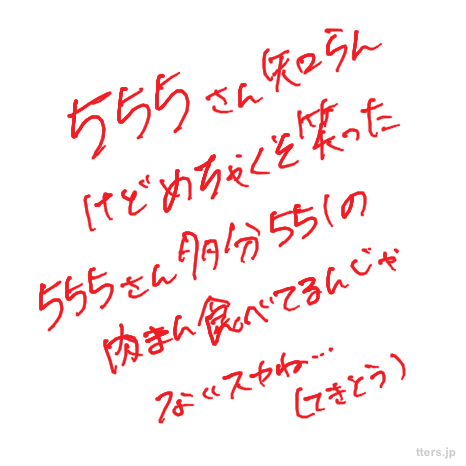 555さん知らん
けどめちゃくそ笑った
555さん多分551の
肉まん食べてるんじゃ
ないスかね…
(てきとう)
tters.jp